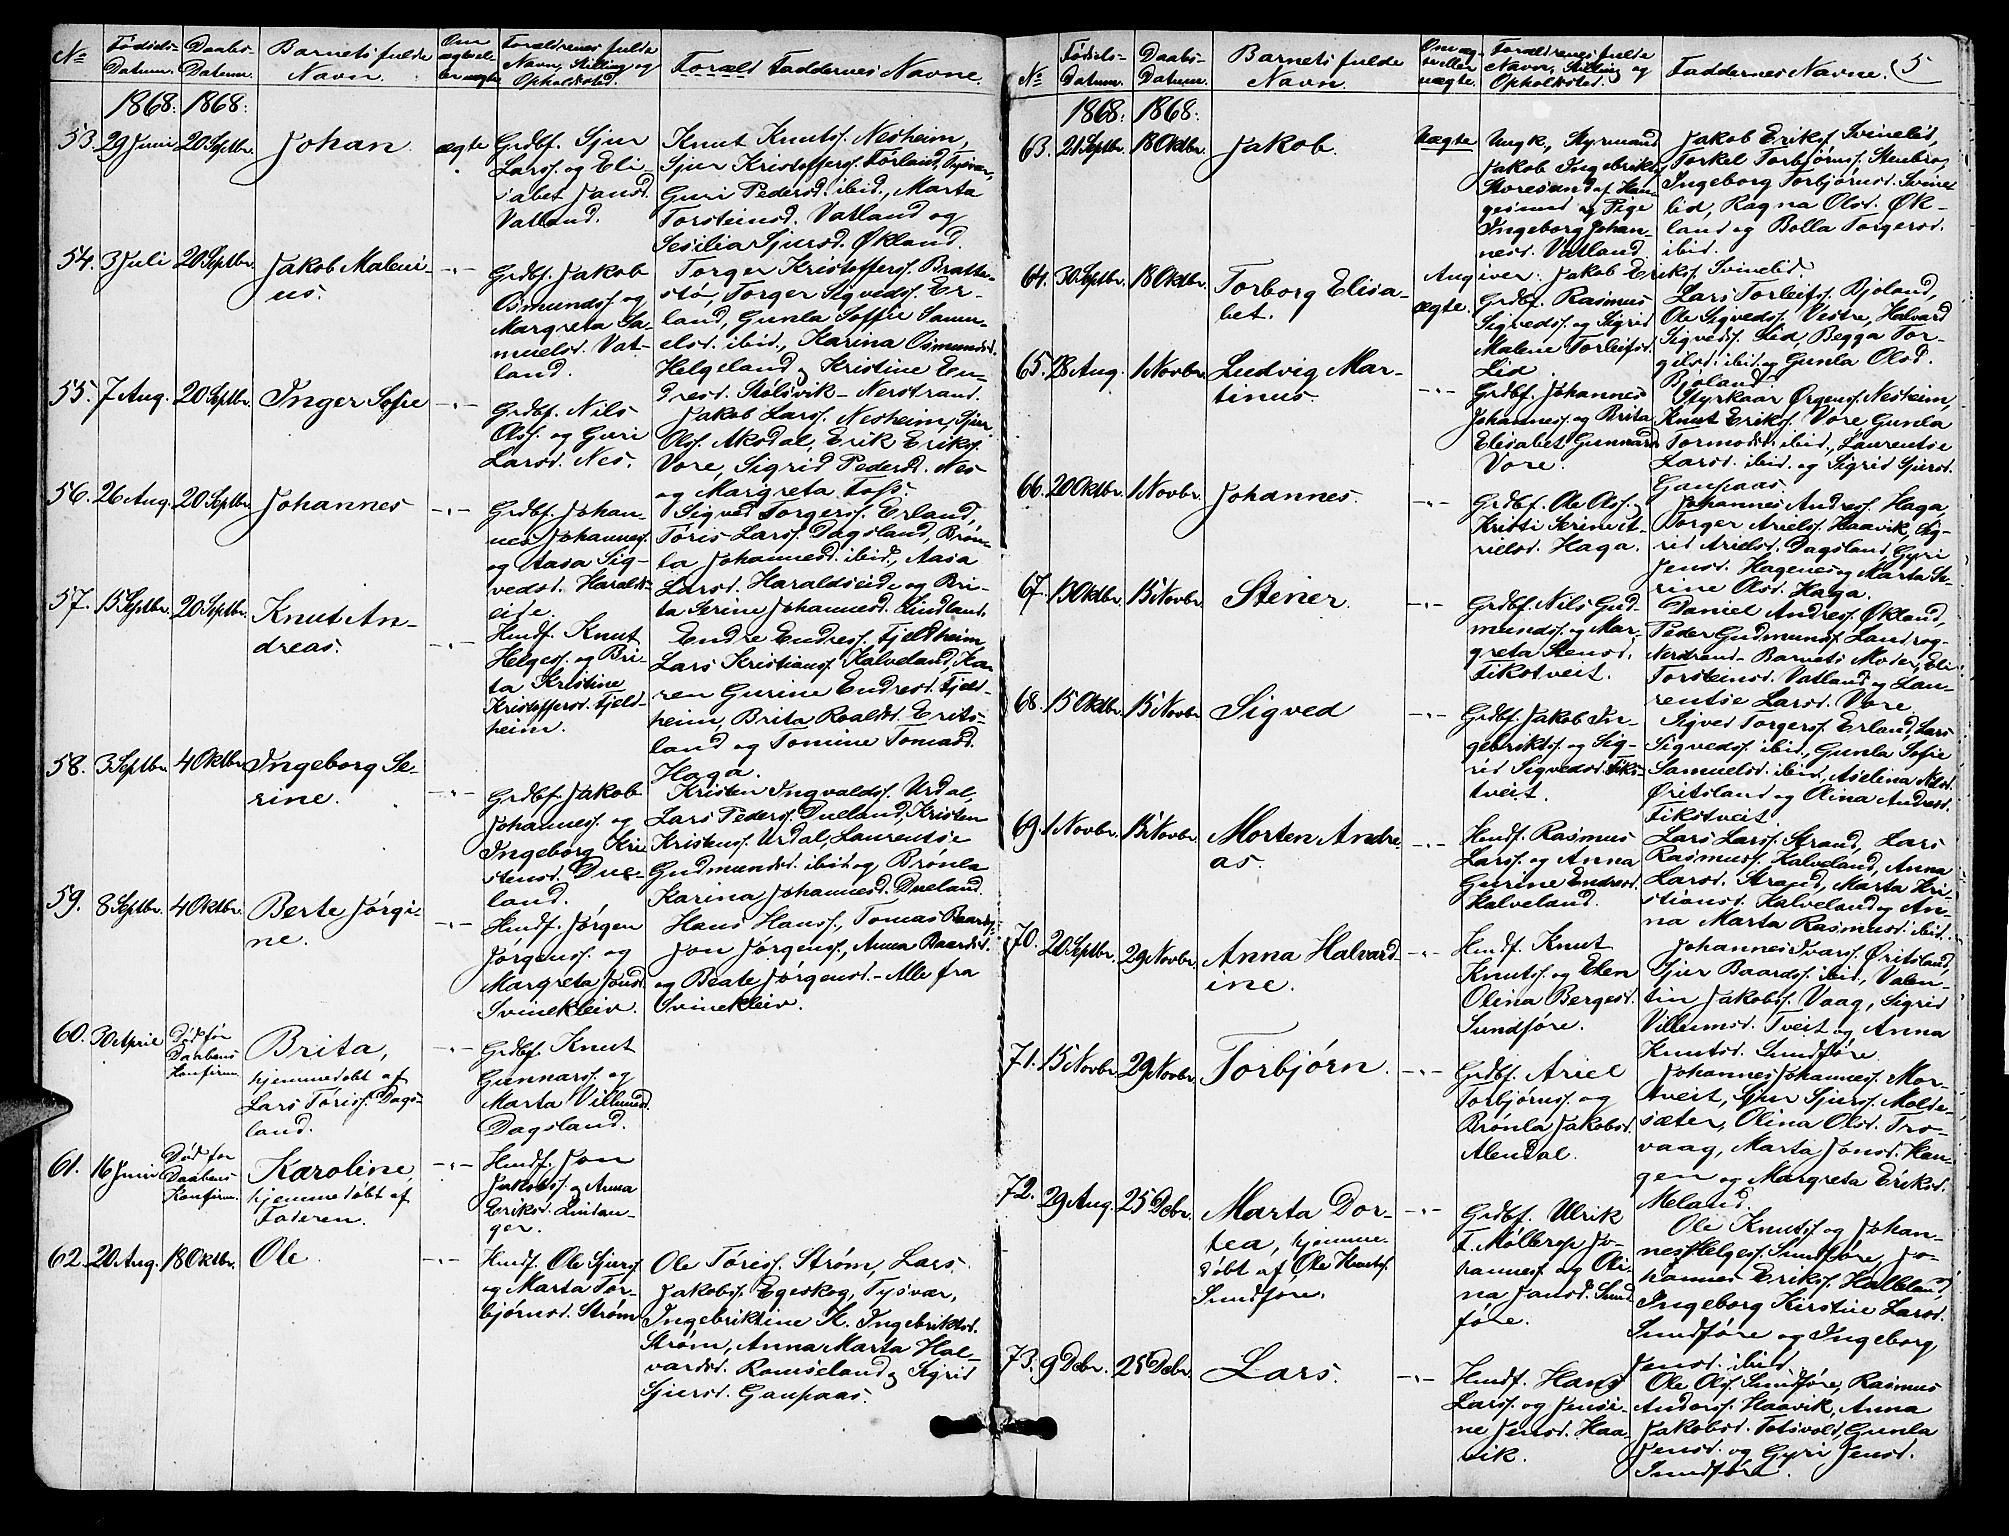 No
Fødsels-
Datum.
Daabs-
Datum.
Barnets fulde
Navn.
Om
ægte el-
ler uægte
Forældrenes fulde
Navn, Stilling og
Opholdssted.
Faddernes Navne.
1868. 1868.
53. 29 Juni 20 Septbr. Johan. ægte
Grdbf. Sjur
Larss. og Eli-
sabet Jansd.
Vatland.
Knut Knutss. Nesheim,
Sjur Kristofferss. Førland, Tysvær,
Guri Pedersd. ibid., Marta
Torsteinsd. Vatland og
Sesilia Sjursd. Økland.
54. 3 Juli 20 Septbr. Jakob Maleni-
us. -"-
Grdbf. Jakob
Osmundss. og
Margreta Sa-
muelsd. Vat-
land.
Torger Kristofferss. Bratte-
stø, Torger Sigvedss. Er-
land, Gunla Soffie Samu-
elsd. ibid., Karina Osmundsd.
Helgeland og Kristine En-
dresd. Stølsvik - Nerstrand.
55. 7 Aug. 20 Septbr. Inger Sofie -"-
Grdbf. Nils
Olss. og Guri
Larsd. Nes.
Jakob Larss. Nesheim, Sjur
Olss. Aksdal, Erik Erikss.
Vore, Sigrid Pedersd. Nes
og Margreta Foss.
56. 26 Aug. 20 Septbr. Johannes -"-
Grdbf. Johan-
nes Johanness.
og Aasa Sig-
vedsd. Haralds-
eide.
Sigved Torgerss. Erland,
Tøris Larss. Dagsland, Brøn-
la Johannesd. ibid., Aasa
Larsd. Haraldseide og Bri-
ta Serine Johannesd. Lindland.
57. 15 Septbr. 20 Septbr. Knut An-
dreas. -"-
Husf. Knut
Helgess. og Bri-
ta Kristine
Kristoffersd. Fjeld-
heim.
Endre Endress. Fjeldheim
Lars Kristianss. Kalveland, Ka-
ren Gurine Endresd. Fjeld-
heim, Brita Roaldsd. Erits-
land og Tomine Tomasd.
Haga.
58. 3 Septbr. 4 Oktbr. Ingeborg Se-
rine. -"-
Grdbf. Jakob
Johanness. og
Ingeborg Kri-
stensd. Due-
land.
Kristen Ingvaldss. Urdal,
Lars Pederss. Dueland, Kristen
Kristenss. Urdal, Laurentse
Gudmundsd. ibid og Brønla
Karina Johannesd. Dueland.
59. 8 Septbr. 4 Oktbr. Berte Jørgi-
ne. -"-
Husf. Jørgen
Jørgenss. og
Margreta Jonsd.
Svinekleiv.
Hans Hanss., Tomas Baardss.
Jon Jørgenss., Anna Baardsd.
og Beate Jørgensd. - Alle fra
Svinekleiv.
60. 30 April Død før
Daabens
Konfirm.
Brita,
hjemmedøbt af
Lars Tøriss. Dags-
land. -"-
Grdbf. Knut
Gunnarss. og
Marta Villumsd.
Dagsland.
61. 16 Juni Død før
Daabens
Konfirm.
Karoline,
hjemmedøbt af
Faderen. -"-
Husf. Jon
Jakobss. og Anna
Eriksd. Lindan-
ger.
62. 20 Aug. 18 Oktbr. Ole. -"-
Husf. Ole Sjurss.
og Marta Tor-
bjørnsd. Strøm
Ole Tøriss. Strøm, Lars
Jakobss. Egeskog, Tysvær,
Ingebriktine K. Ingebriktsd.
Strøm, Anna Marta Hal-
vardsd. Romseland og Sigrid
Sjursd. Gaupaas.
No
Fødsels-
Datum.
Daabs-
Datum.
Barnets fulde
Navn.
Om æg-
te eller
uægte.
Forældrenes fulde
Navn, Stilling og
Opholdssted.
Faddernes Navne. 5
1868. 1868.
63. 21 Septbr. 18 Oktbr. Jakob. Uægte
Ungk., Styrmand
Jakob Ingebrikts.
Storesund af Hau-
gesund og Pige
Ingeborg Johan-
nesd. Vatland
Jakob Erikss. Svinelid,
Torkel Torbjørnss. Stubrog
Ingeborg Torbjørnsd. Svine-
lid, Ragna Olsd. Øk-
land og Bolla Torgersd.
ibid.
Angiver: Jakob Erikss. Svinelid.
64. 30 Septbr. 18 Oktbr. Torborg Elisa-
bet. ægte.
Grdbf. Rasmus
Sigvedss. og Sigrid
Malene Torleifsd.
Lid
Lars Torleifss. Bjoland,
Ole Sigvedss. Vestre, Halvard
Sigvedss. Lid, Begga Tor-
gilsd. ibid og Gunla Olsd.
Bjoland
65. 28 Aug. 1 Novbr. Ludvig Mar-
tinus. -"-
Grdbf. Johannes
Johanness. og Brita
Elisabet Gunnarsd.
Vore.
Styrkaar Ørgenss. Nesheim,
Knut Erikss. Vore Gunla
Tormodsd. ibid., Laurentse
Larsd. ibid. og Sigrid Sjursd.
Gaupaas.
66. 20 Oktbr. 1 Novbr. Johannes. -"-
Grdbf. Ole Olss. og
Kristi Serine
rielsd. Haga.
Johannes Andress. Haga,
Torger Arielss. Haavik, Sig-
rid Arielsd. Dagsland, Gyri
Jensd. Hagenes og Marta Se-
rine Olsd. Haga.
67. 13 Oktbr. 15 Novbr. Stener. -"-
Grdbf. Nils Gud-
mundss. og Mar-
greta Stensd.
Fikstveit.
Daniel Andress. Økland,
Peder Gudmundss. Landrog
Nerstrand - Barnets Moder, Eli
Torsteinsd. Vatland og Lau-
rentse Larsd. Vore.
68. 15 Oktbr. 15 Novbr. Sigved -"-
Grdbf. Jakob In-
gebriktss. og Sig-
rid Sigvedsd. Fiks-
tveit.
Sigved Torgerss. Erland, Lars
Sigvedss. ibid, Gunla Sofie
Samuelsd. ibid, Aselina Nilsd.
Øritsland og Olina Andresd.
Fikstveit.
69. 1 Novbr. 15 Novbr. Morten Andre
as. -"-
Husf. Rasmus
Larss. og Anna
Gurine Endresd.
Kalveland.
Lars Larss. Strand, Lars
Rasmuss. Kalveland, Anna
Larsd. Strand, Marta Kri-
stiansd. Kalveland og An-
na Marta Rasmusd. ibid.
70. 20 Septbr. 29 Novbr. Anna Halvard
ine. -"-
Husf. Knut
Knutss. og Elen
Olina Bergesd.
Sundføre.
Johannes Ivarss. Øritsland,
Sjur Baardss. ibid, Valen-
tin Jakobss. Vaag, Sigrid
Villumsd. Tveit og Anna
Knutsd. Sundføre.
71. 15 Novbr. 29 Novbr. Torbjørn. -"-
Grdbf. Ariel
Torbjørnss. og
Brønla Jakobsd.
Alendal.
Johannes Johanness. Mor-
tveit, Sjur Sjurss. Molde-
sæter, Olina Olsd. Tro-
vaag, Marta Jonsd. Hau-
gen og Margreta Eriksd.
Meland.
72. 29 Aug. 25 Decbr. Marta Dor-
tea, hjemme-
døbt af Ole Knutss.
Sundføre. -"-
Grdbf. Ulrik
F. Møllerop Jo-
hanness. og Oli-
na Jansd. Sund
føre.
Ole Knutss. og Johan-
nes Helgess. Sundføre, Jo-
hannes Erikss. Halleland,
Ingeborg Kirstine Larsd.
Sundføre og Ingeborg
Jensd. ibid.
73. 9 Decbr. 25 Decbr. Lars. -"-
Husf. Hans
Larss. og Jensi-
ne Jensd. Haa-
vik.
Ole Olss. Sundføre, Rasmus
Anderss. Haavik, Anna
Jakobsd. Totsvold, Gunla
Jensd. og Gyri Jensd.
Sundføre.